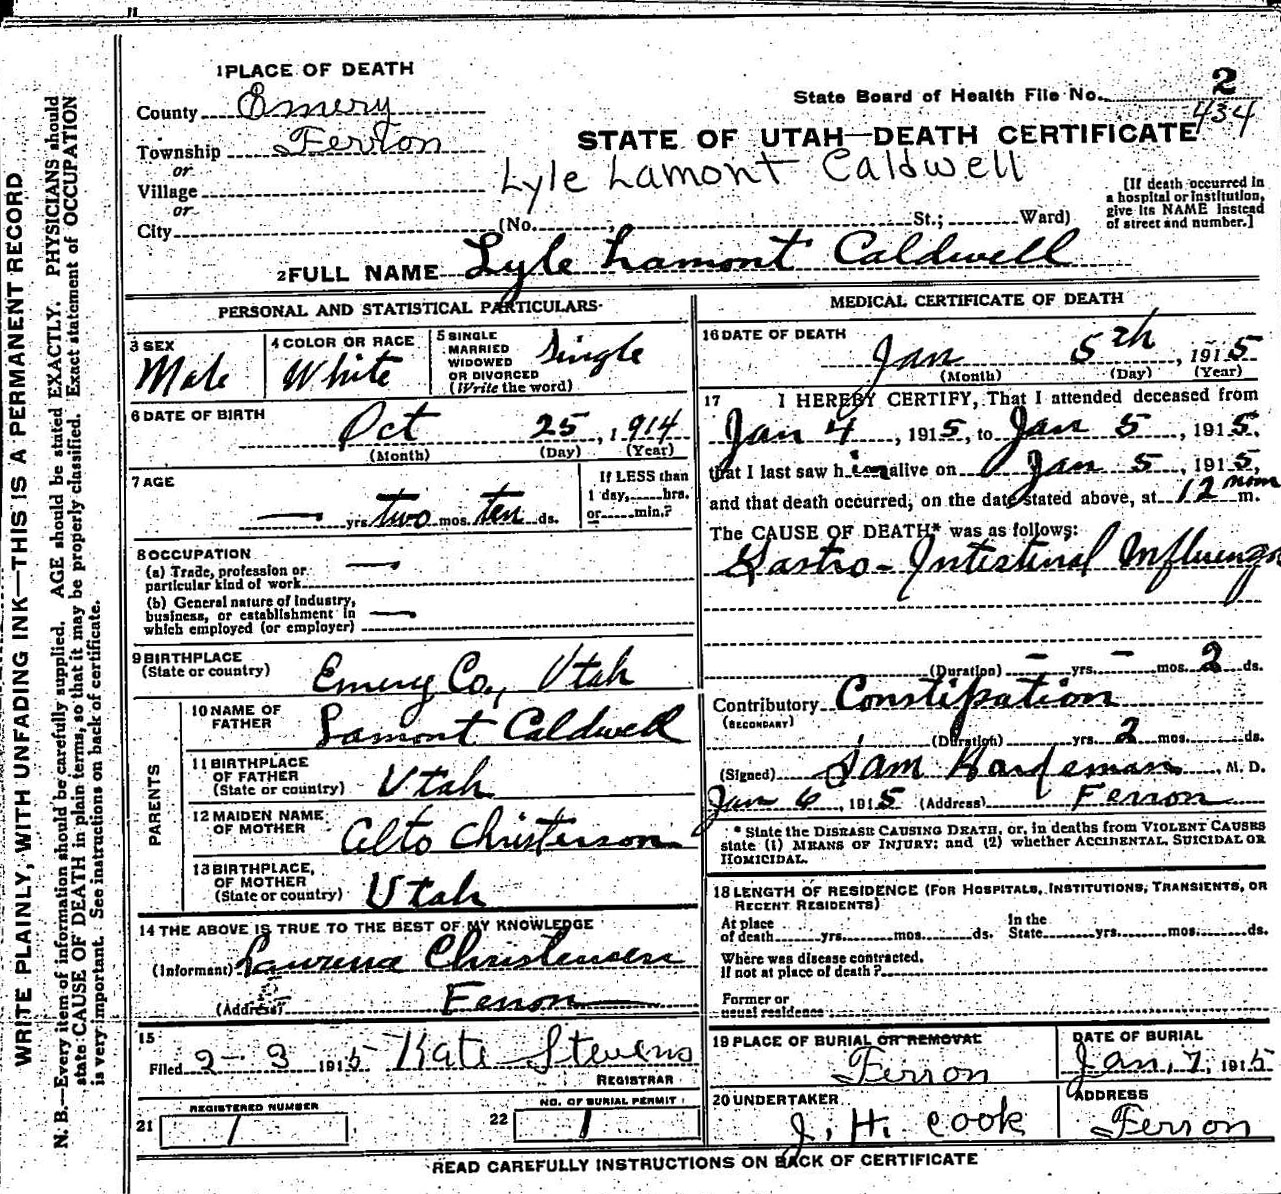 1 PLACE OF DEATH
County Emery
Township Ferron
or
Village
or
City
State Board of Health File No. 2
434
STATE OF UTAH—DEATH CERTIFICATE
Lyle Lamont Caldwell
(No. , St.; Ward)
[If death occurred in
a hospital or institution,
give its NAME instead
of street and number.]
2 FULL NAME Lyle Lamont Caldwell
PERSONAL AND STATISTICAL PARTICULARS
3 SEX
Male
4 COLOR OR RACE
White
5 SINGLE
MARRIED
WIDOWED
OR DIVORCED
(Write the word)
Single
6 DATE OF BIRTH
Oct 25, 1914
(Month) (Day) (Year)
7 AGE
— yrs. two mos. ten ds.
If LESS than
1 day, hrs.
or min.?
8 OCCUPATION
(a) Trade, profession or
particular kind of work —
(b) General nature of industry,
business, or establishment in
which employed (or employer) —
9 BIRTHPLACE
(State or country)
Emery Co., Utah
PARENTS
10 NAME OF
FATHER
Lamont Caldwell
11 BIRTHPLACE
OF FATHER
(State or country)
Utah
12 MAIDEN NAME
OF MOTHER
Alto Christenson
13 BIRTHPLACE,
OF MOTHER
(State or country)
Utah
14 THE ABOVE IS TRUE TO THE BEST OF MY KNOWLEDGE
(Informant) Christensen
(Address) Ferron
15
Filed 2-3 1915 Kate Stevens
REGISTRAR
REGISTERED NUMBER
21 1
NO. OF BURIAL PERMIT
22 1
MEDICAL CERTIFICATE OF DEATH
16 DATE OF DEATH
Jan 5th, 1915
(Month) (Day) (Year)
17 I HEREBY CERTIFY, That I attended deceased from
Jan 4, 1915, to Jan 5, 1915,
that I last saw him alive on Jan 5, 1915,
and that death occurred, on the date stated above, at 12 noon m.
The CAUSE OF DEATH* was as follows:
Gastro-Intestinal Influenza
(Duration) – yrs. – mos. 2 ds.
Contributory Constipation
(SECONDARY)
(Duration) yrs. 2 mos. ds.
(Signed) Sam Hardeman, M. D.
Jan 6, 1915 (Address) Ferron
* State the DISEASE CAUSING DEATH, or, in deaths from VIOLENT CAUSES
state (1) MEANS OF INJURY; and (2) whether ACCIDENTAL, SUICIDAL OR
HOMICIDAL.
18 LENGTH OF RESIDENCE (FOR HOSPITALS, INSTITUTIONS, TRANSIENTS, OR
RECENT RESIDENTS)
At place
of death yrs. mos. ds.
In the
State yrs. mos. ds.
Where was disease contracted,
If not at place of death?
Former or
usual residence
19 PLACE OF BURIAL OR REMOVAL
Ferron
DATE OF BURIAL
Jan, 7, 1915
20 UNDERTAKER
J. H. Cook
ADDRESS
Ferron
READ CAREFULLY INSTRUCTIONS ON BACK OF CERTIFICATE
WRITE PLAINLY, WITH UNFADING INK—THIS IS A PERMANENT RECORD
N. B.—Every item of information should be carefully supplied. AGE should be stated EXACTLY. PHYSICIANS should
state CAUSE OF DEATH in plain terms, so that it may be properly classified. Exact statement of OCCUPATION
is very important. See instructions on back of certificate.